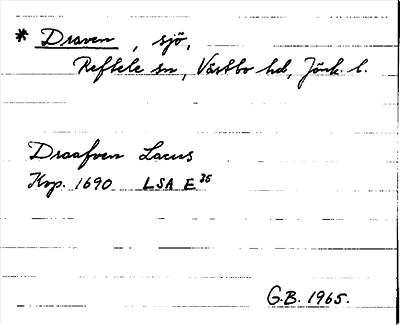 * Draven, sjö,
Reftele sn, Västbo hd, Jönk. l.
Draafven Lacus
Kop. 1690 LSA E 35
G.B. 1965.